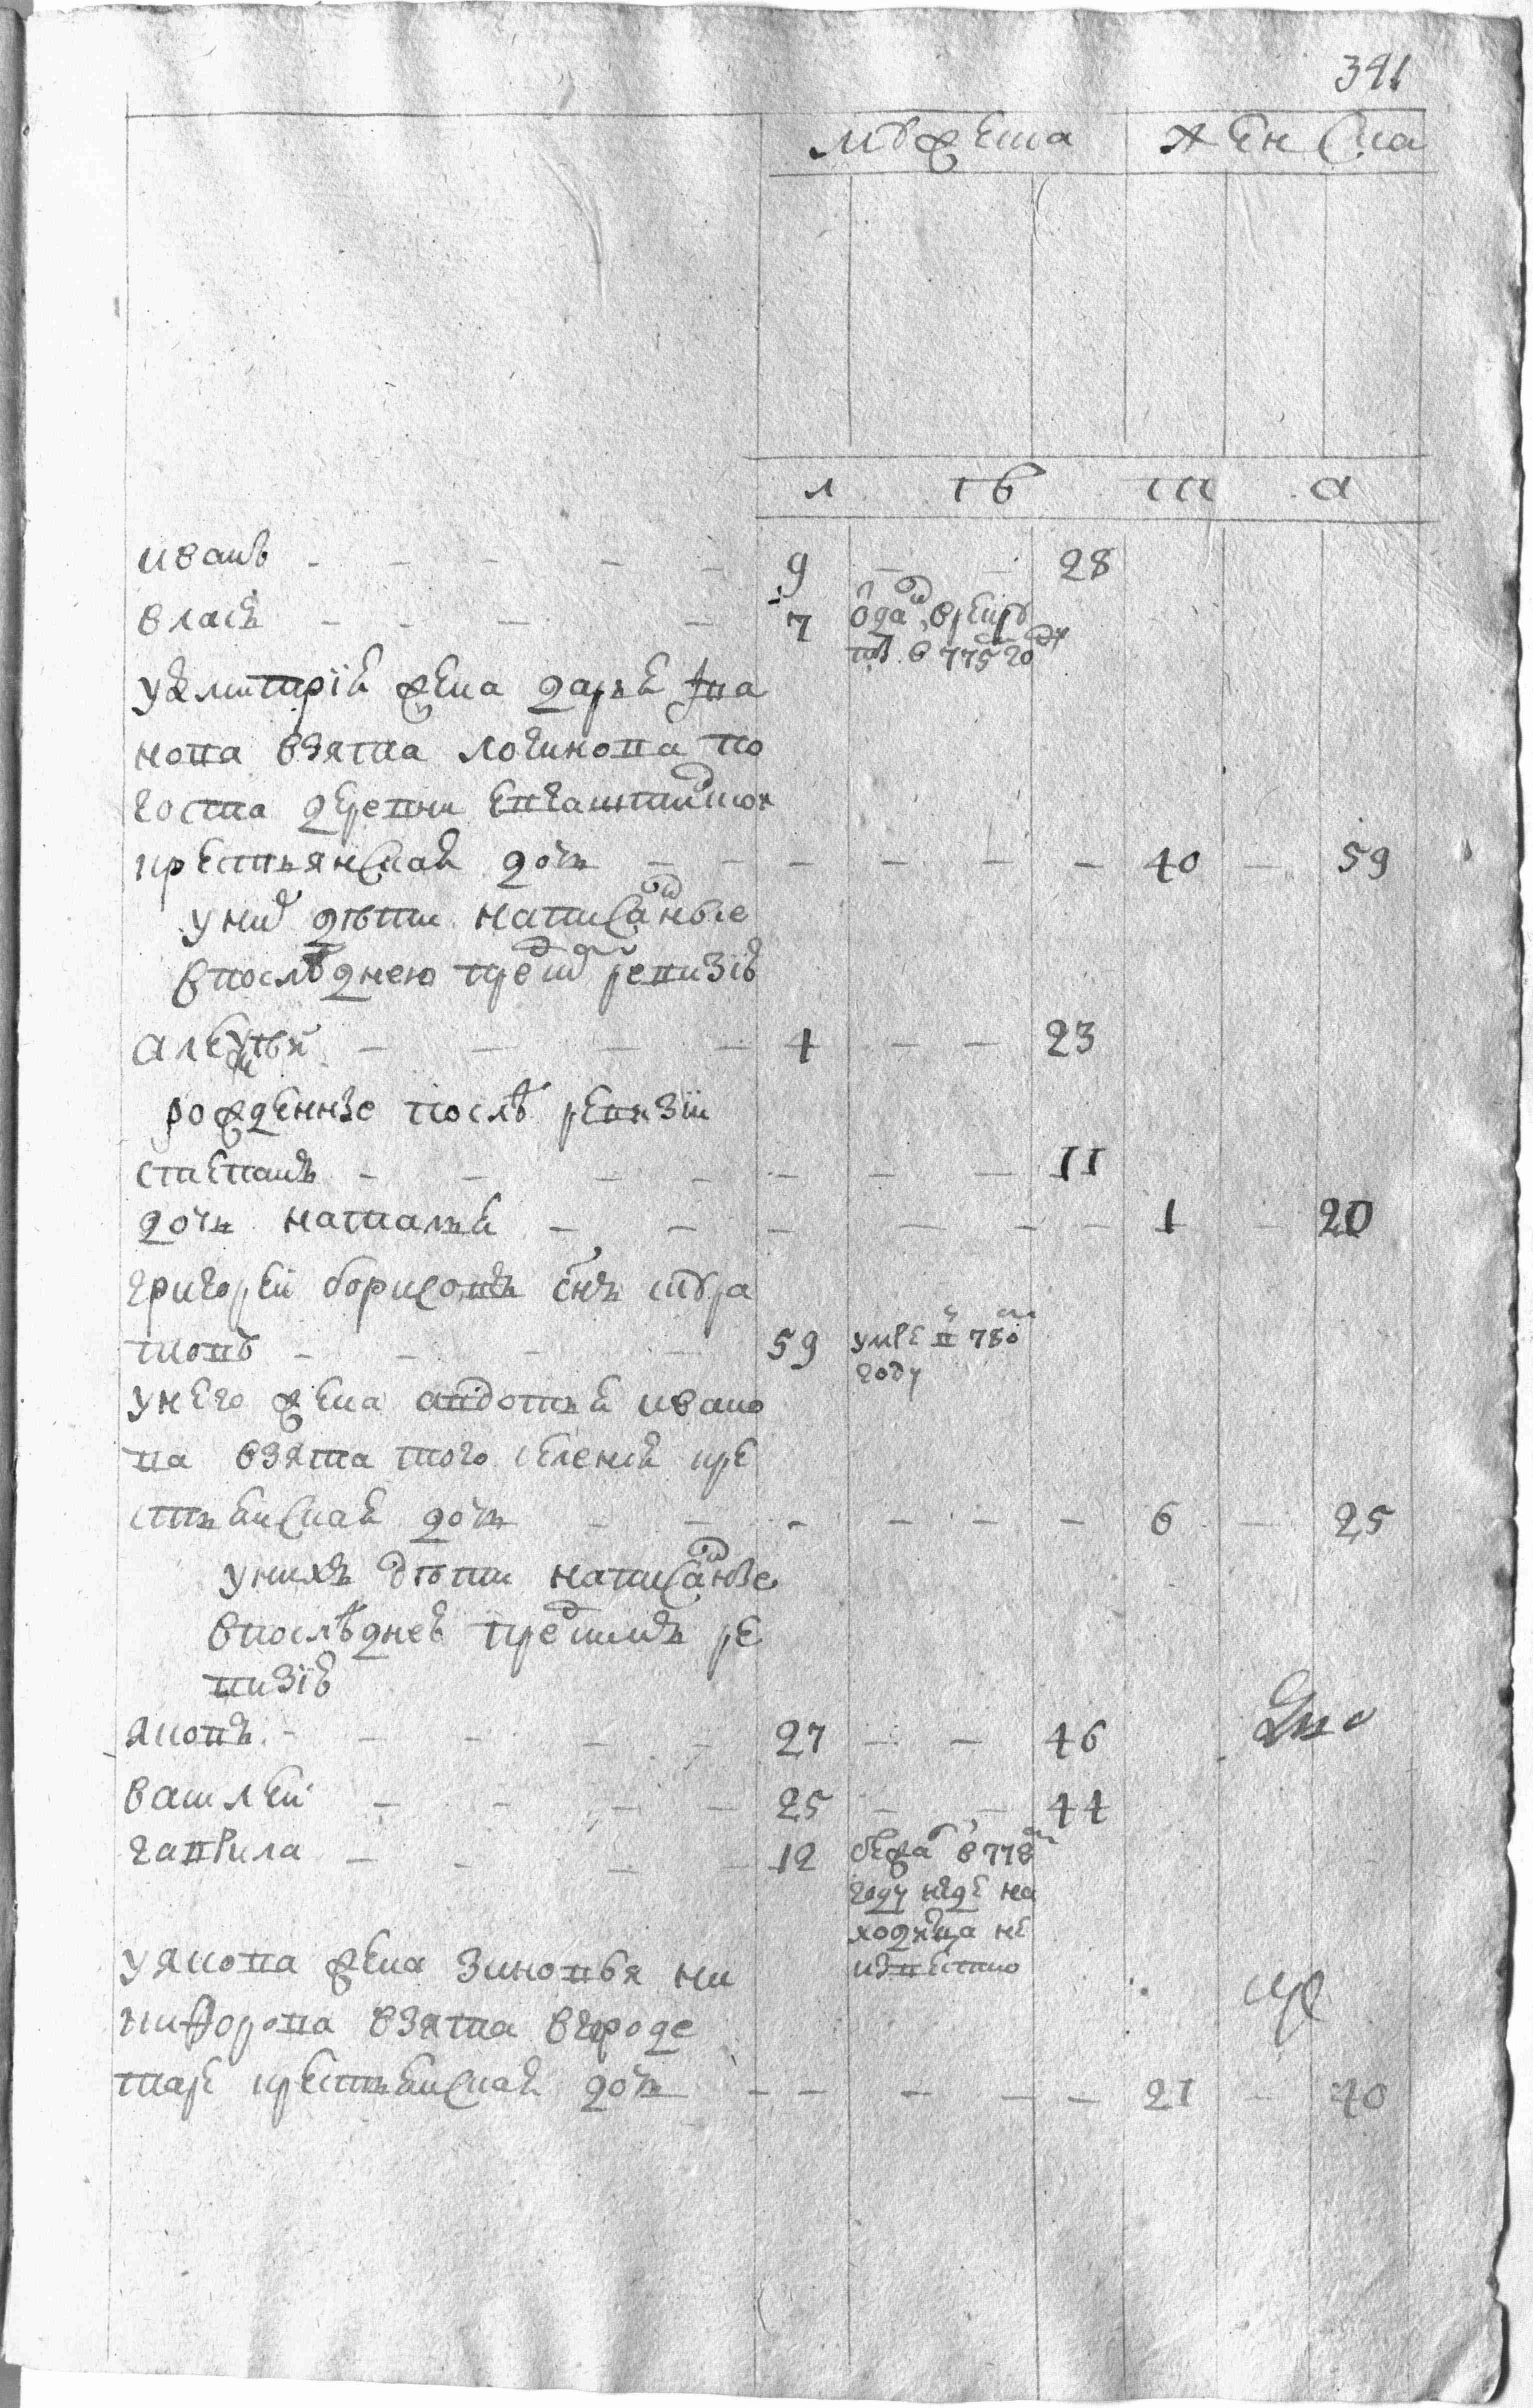 391
мужеска женска
л ѣ т а
иванъ 9 28
власъ 7 отданъ врекру
ты в 775 году
удмитрія жена дарья
нова взята логинова по
госта деревни
крестьянская дочь 40 59
у них дѣти написанные
впослѣднею пред сей ревизіе
алексѣй 4 23
рожденные послѣ ревизіи
степанъ 11
дочь наталья 1 20
григорей борисовъ снъ
59 умре в 780
году
у него жена авдотья ивано
ва взята того селения кре
стьянская дочь 6 25
у нихъ дѣти написаные
впослѣднеѣ пред симъ ре
визіѣ
яковъ 27 46
василей 25 44
гаврила 12 бежал в 778
году нѣгде на
ходяца не
извѣстно
у якова жена зиновья ни
кифорова взята вгороде
таре крестьянская дочь 21 40